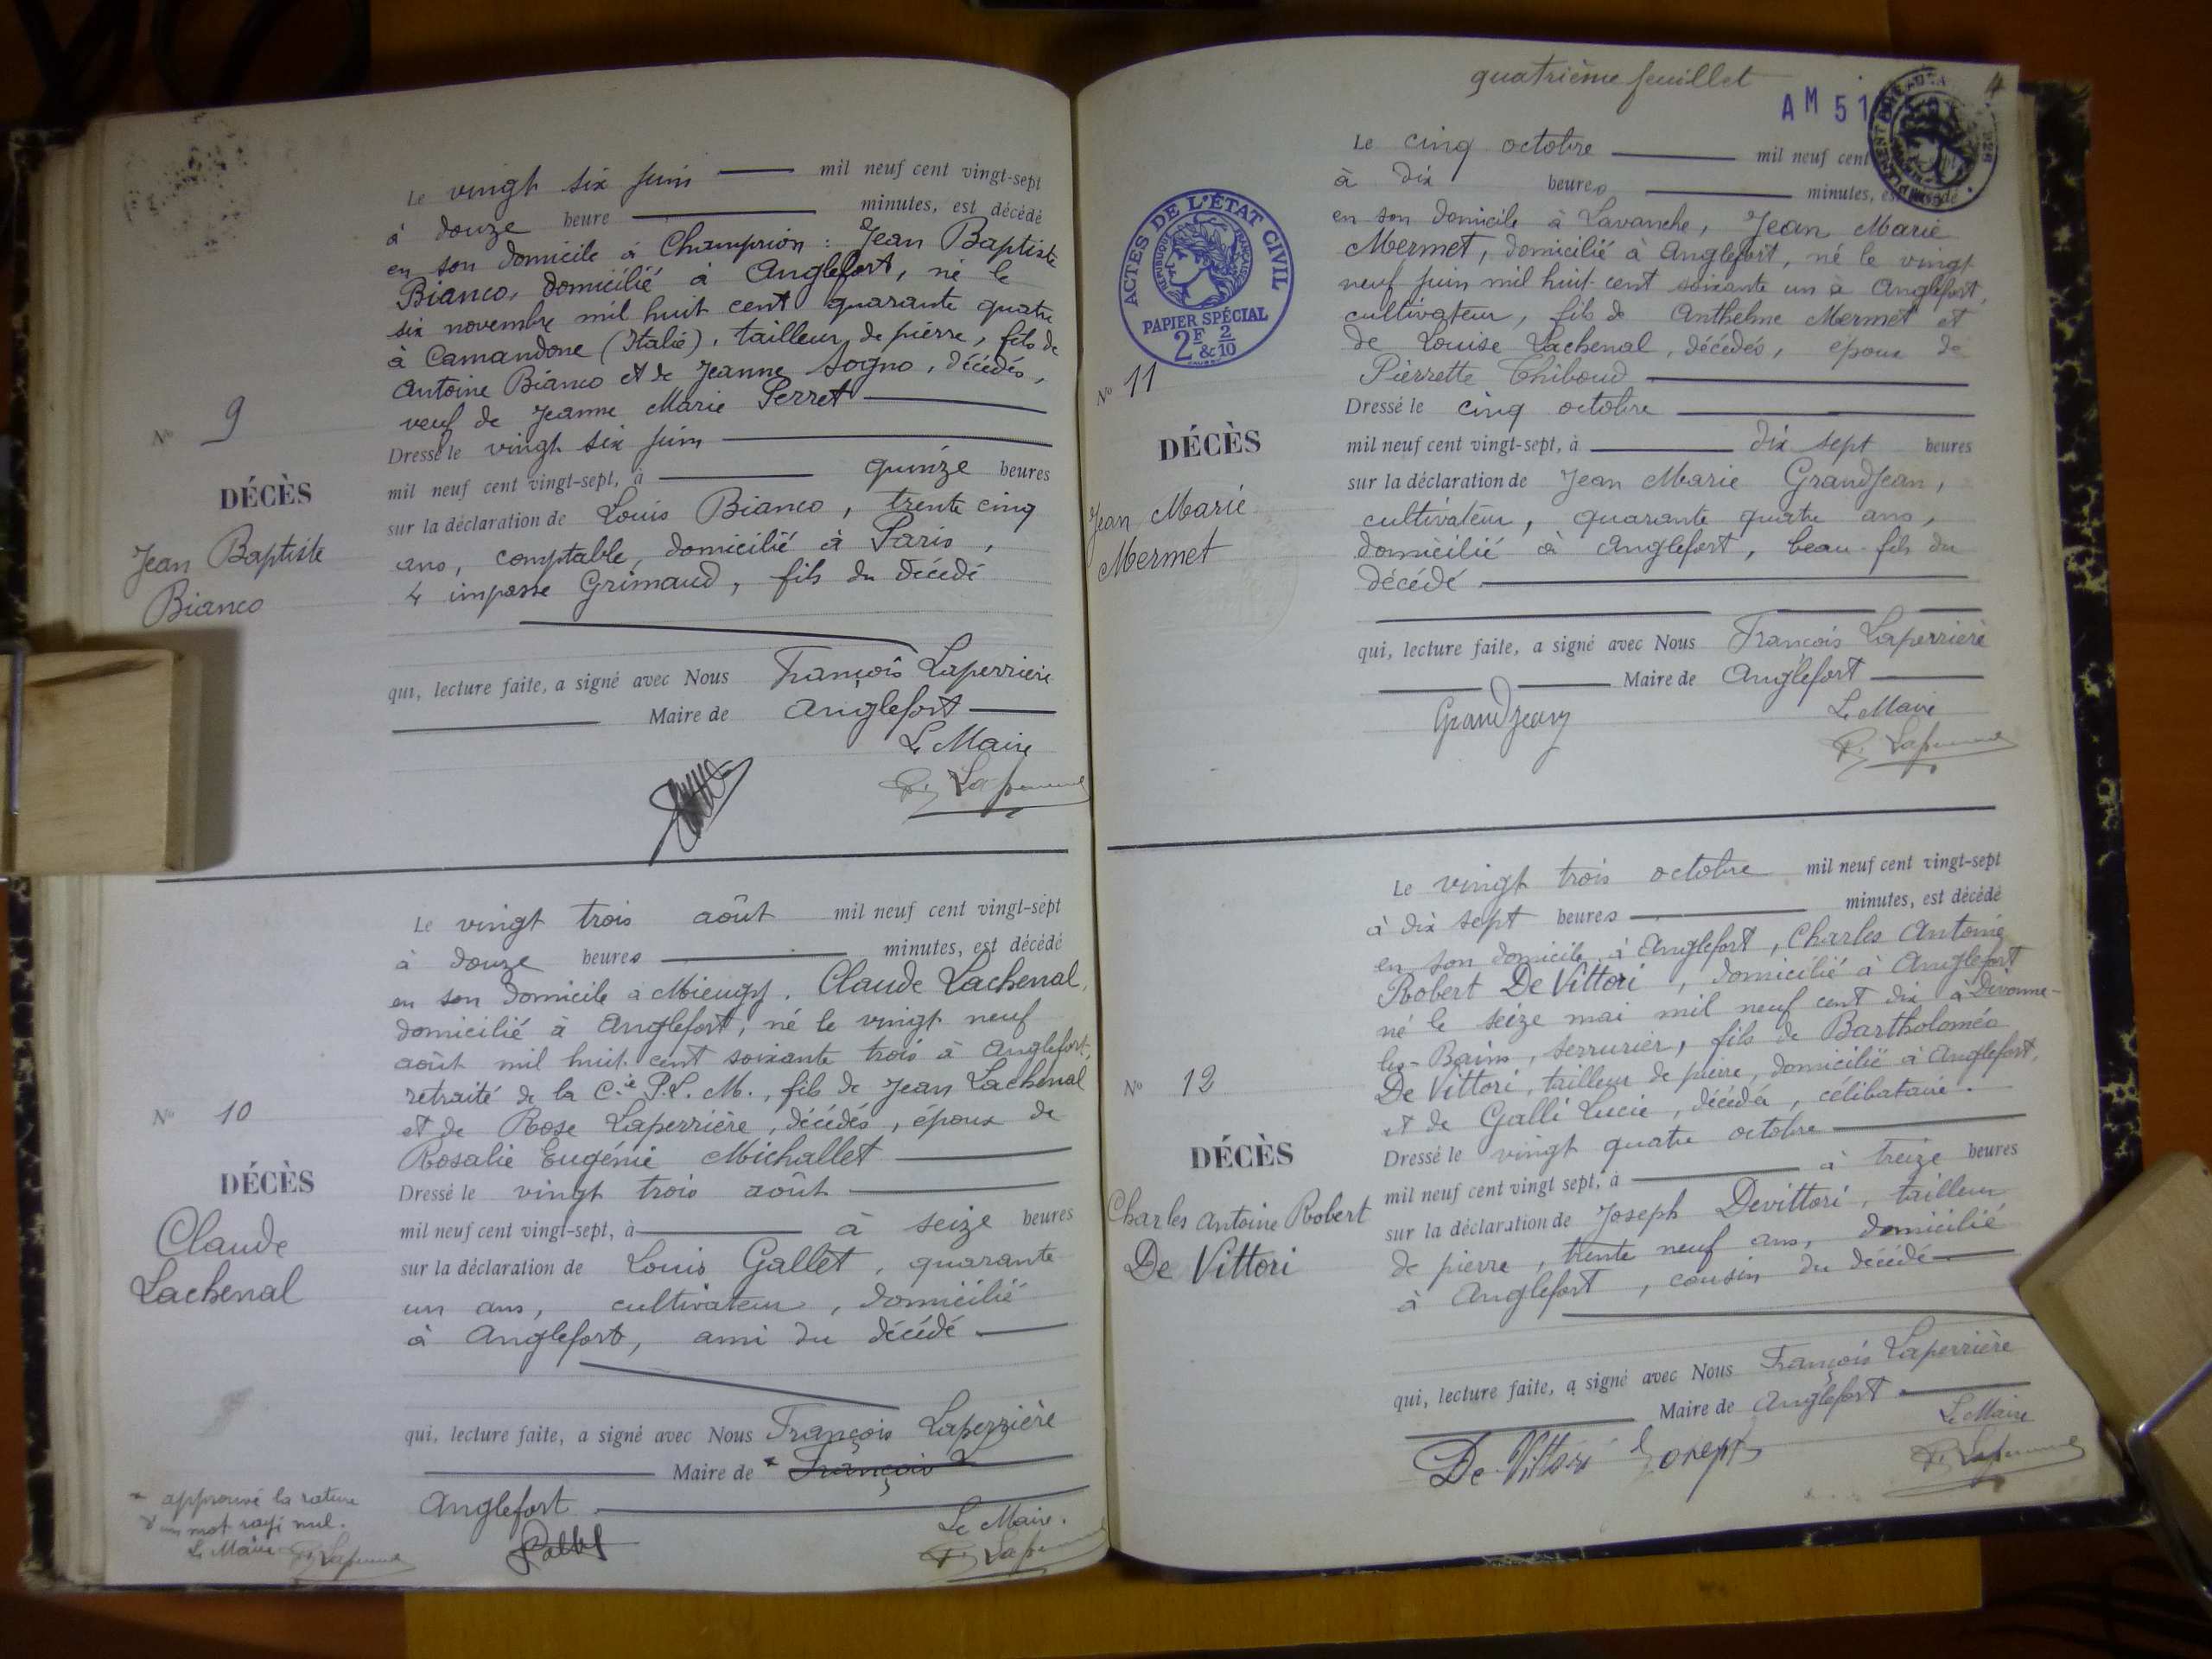 Le vingt six juin mil neuf cent vingt-sept
à douze heure minutes, est décédé
en son domicile à Champrion : Jean Baptiste
Bianco, domicilié à Anglefort, né le
six novembre mil huit cent quarante quatre
à Camandone (Italie), tailleur de pierre, fils de
Antoine Bianco et de Jeanne Sogno, décédés,
veuf de Jeanne Marie Perret
Dressé le vingt six juin
mil neuf cent vingt-sept, à quinze heures
sur la déclaration de Louis Bianco, trente cinq
ans, comptable, domicilié à Paris,
4 impasse Grimaud, fils du décédé
qui, lecture faite, a signé avec Nous François Laperrière
Maire de Anglefort
Le Maire
Nº 9
DÉCÈS
Jean Baptiste
Bianco
Le vingt trois août mil neuf cent vingt-sept
à douze heures minutes, est décédé
en son domicile à Mieugy, Claude Lachenal,
domicilié à Anglefort, né le vingt neuf
août mil huit cent soixante trois à Anglefort,
retraité de la Cie P.L.M., fils de Jean Lachenal
et de Rose Laperrière, décédés, époux de
Rosalie Eugénie Michallet
Dressé le vingt trois août
mil neuf cent vingt-sept, à à seize heures
sur la déclaration de Louis Gallet, quarante
un ans, cultivateur, domicilié
à Anglefort, ami du décédé
qui, lecture faite, a signé avec Nous François Laperrière
Maire de * François L
Anglefort
Le Maire.
Nº 10
DÉCÈS
Claude
Lachenal
* approuvé la rature
d'un mot rayé nul.
Le Maire
quatrième feuillet
4
AM 51
ACTES DE L'ÉTAT CIVIL
RÉPUBLIQUE FRANÇAISE
PAPIER SPÉCIAL
2F & 2/10
Le cinq octobre mil neuf cent
à dix heures minutes, est décédé
en son domicile à Lavanche, Jean Marie
Mermet, domicilié à Anglefort, né le vingt
neuf juin mil huit cent soixante un à Anglefort,
cultivateur, fils de Anthelme Mermet et
de Louise Lachenal, décédés, époux de
Pierrette Thiboud
Dressé le cinq octobre
mil neuf cent vingt-sept, à dix sept heures
sur la déclaration de Jean Marie GrandJean,
cultivateur, quarante quatre ans,
domicilié à Anglefort, beau-fils du
décédé
qui, lecture faite, a signé avec Nous François Laperrière
Maire de Anglefort
Grandjean
Le Maire
Nº 11
DÉCÈS
Jean Marie
Mermet
Le vingt trois octobre mil neuf cent vingt-sept
à dix sept heures minutes, est décédé
en son domicile à Anglefort, Charles Antoine
Robert De Vittori, domicilié à Anglefort
né le seize mai mil neuf cent dix à Divonne-
les-Bains, serrurier, fils de Bartholoméo
De Vittori, tailleur de pierre, domicilié à Anglefort,
et de Galli Lucie, décédée, célibataire.
Dressé le vingt quatre octobre
mil neuf cent vingt sept, à à treize heures
sur la déclaration de Joseph Devittori, tailleur
de pierre, trente neuf ans, domicilié
à Anglefort, cousin du décédé
qui, lecture faite, a signé avec Nous François Laperrière
Maire de Anglefort
Le Maire
De Vittori Joseph
Nº 12
DÉCÈS
Charles Antoine Robert
De Vittori